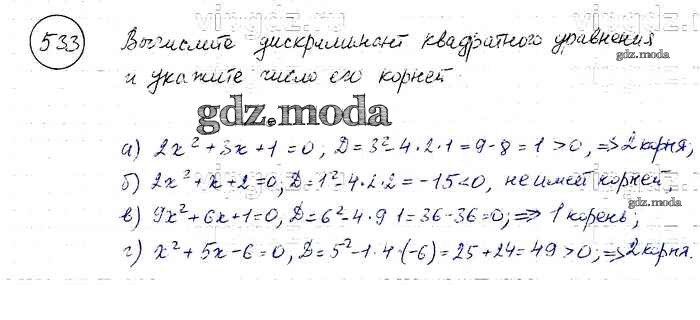 533 Вычислите дискриминант квадратного уравнения
и укажите число его корней.
gdz.moda
gdz.moda
а) 2x² + 3x + 1 = 0; D = 3² - 4 · 2 · 1 = 9 - 8 = 1 > 0, => 2 корня;
б) 2x² + x + 2 = 0; D = 1² - 4 · 2 · 2 = -15 < 0, не имеет корней;
gdz.moda
в) 9x² + 6x + 1 = 0, D = 6² - 4 · 9 · 1 = 36 - 36 = 0; => 1 корень;
г) x² + 5x - 6 = 0, D = 5² - 1 · 4 · (-6) = 25 + 24 = 49 > 0; => 2 корня.